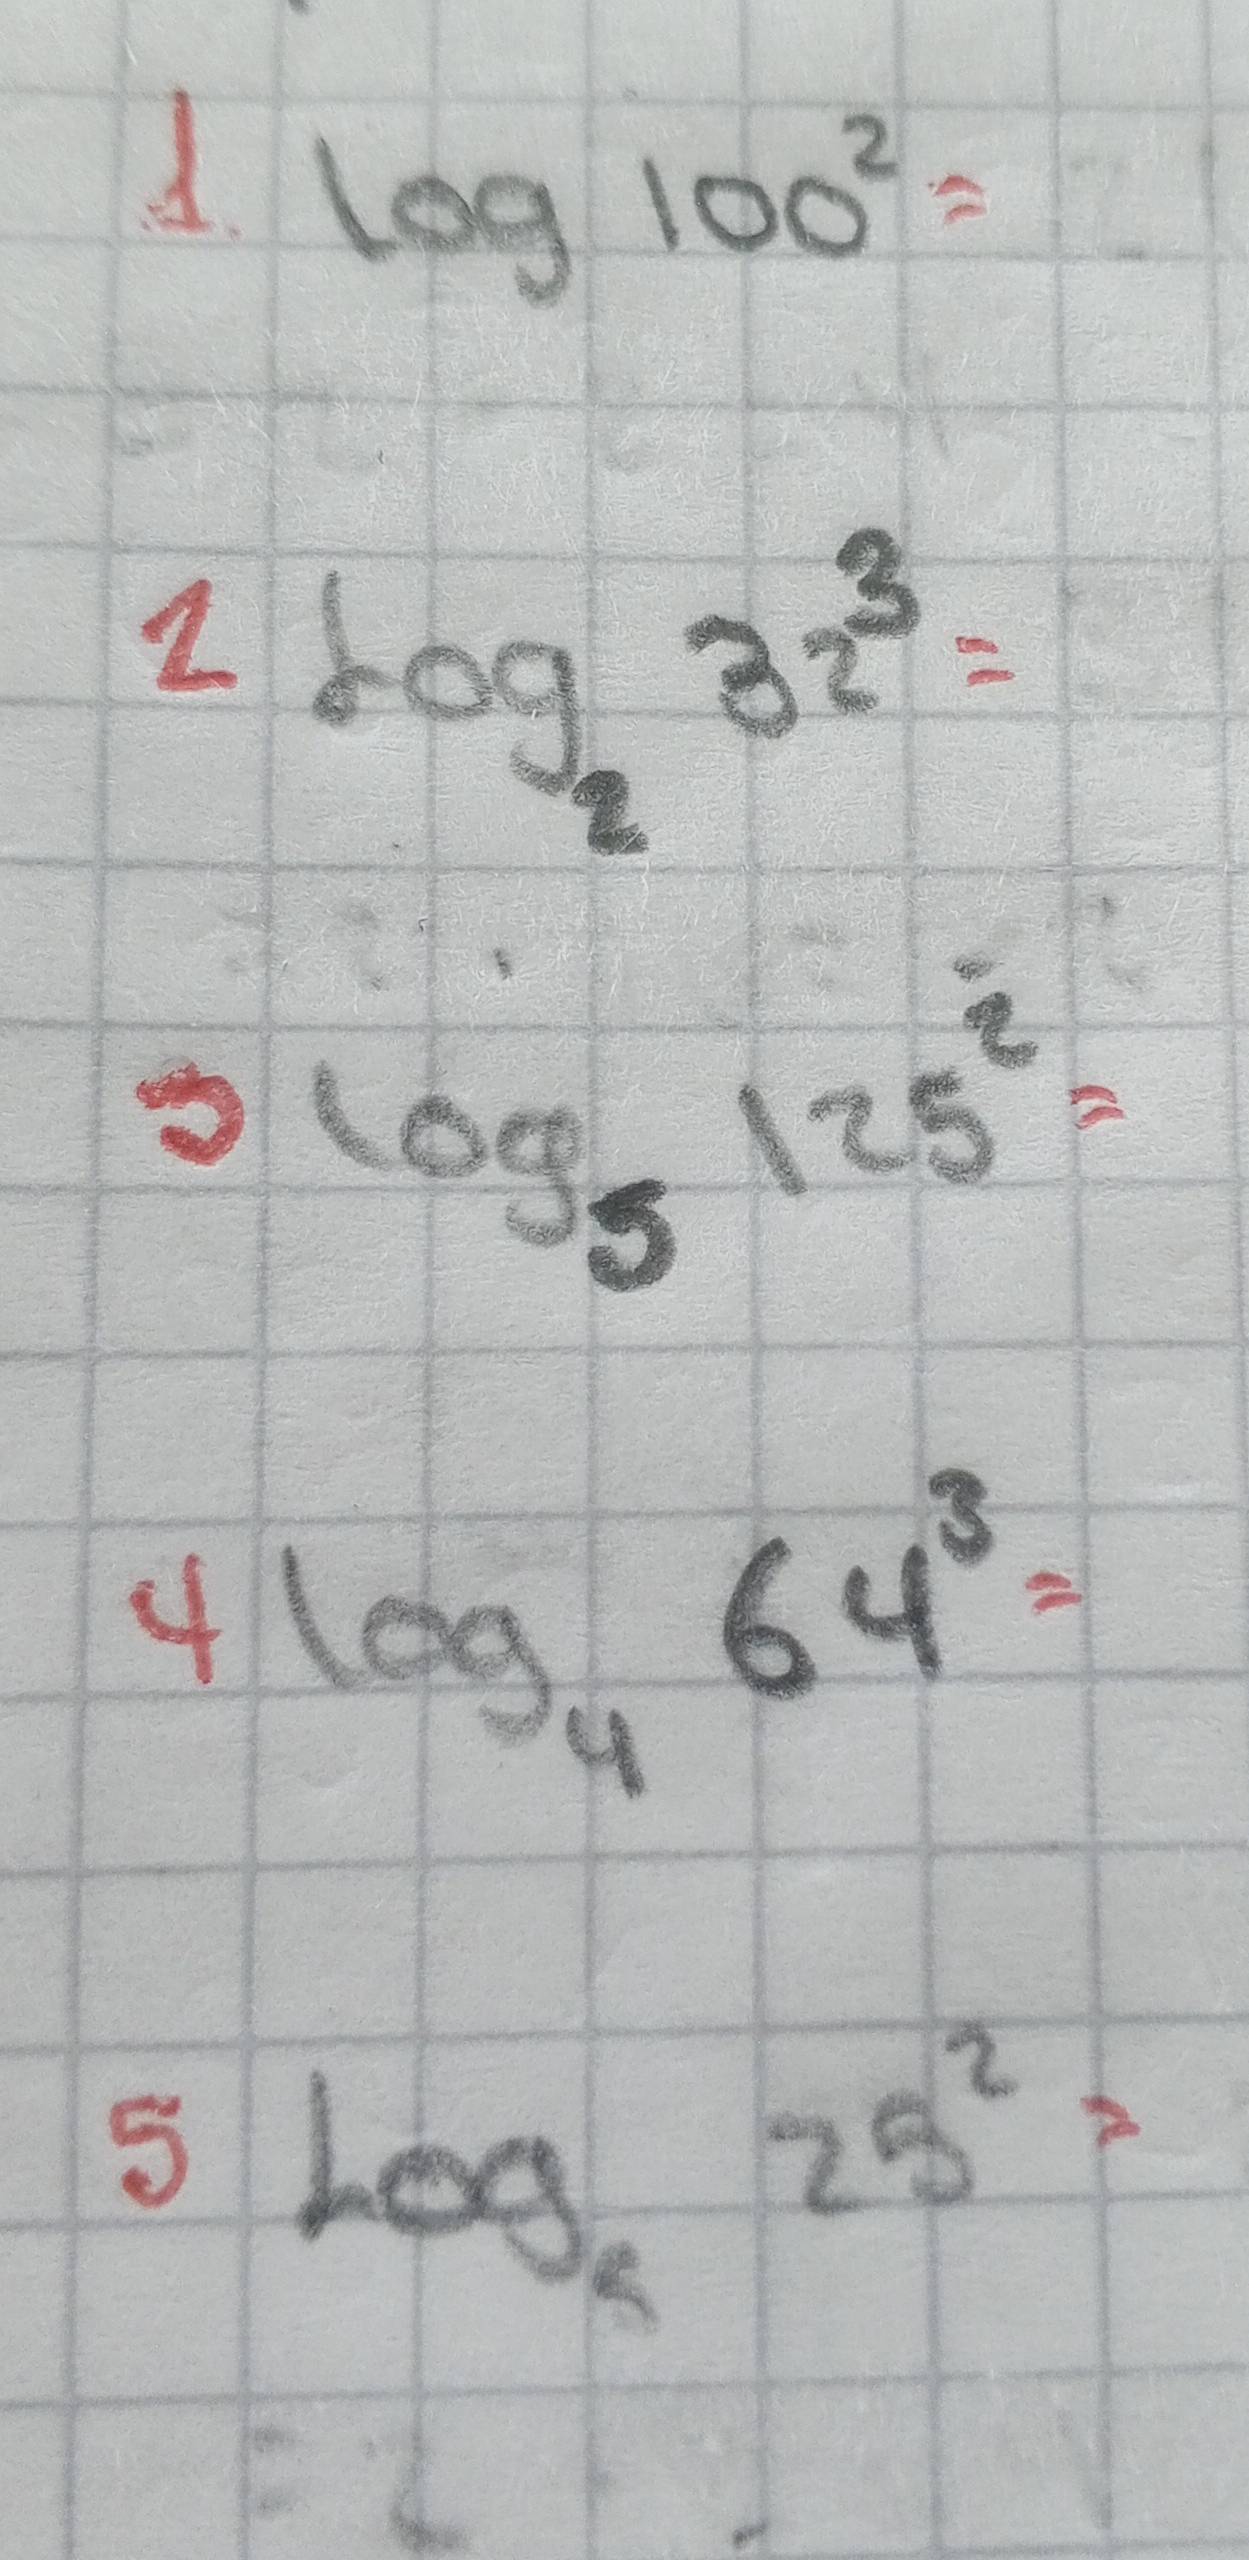 1. log 100² =
2 log₂ 32³ =
3 log₅ 125² =
4 log₄ 64³ =
5 log₅ 25² =